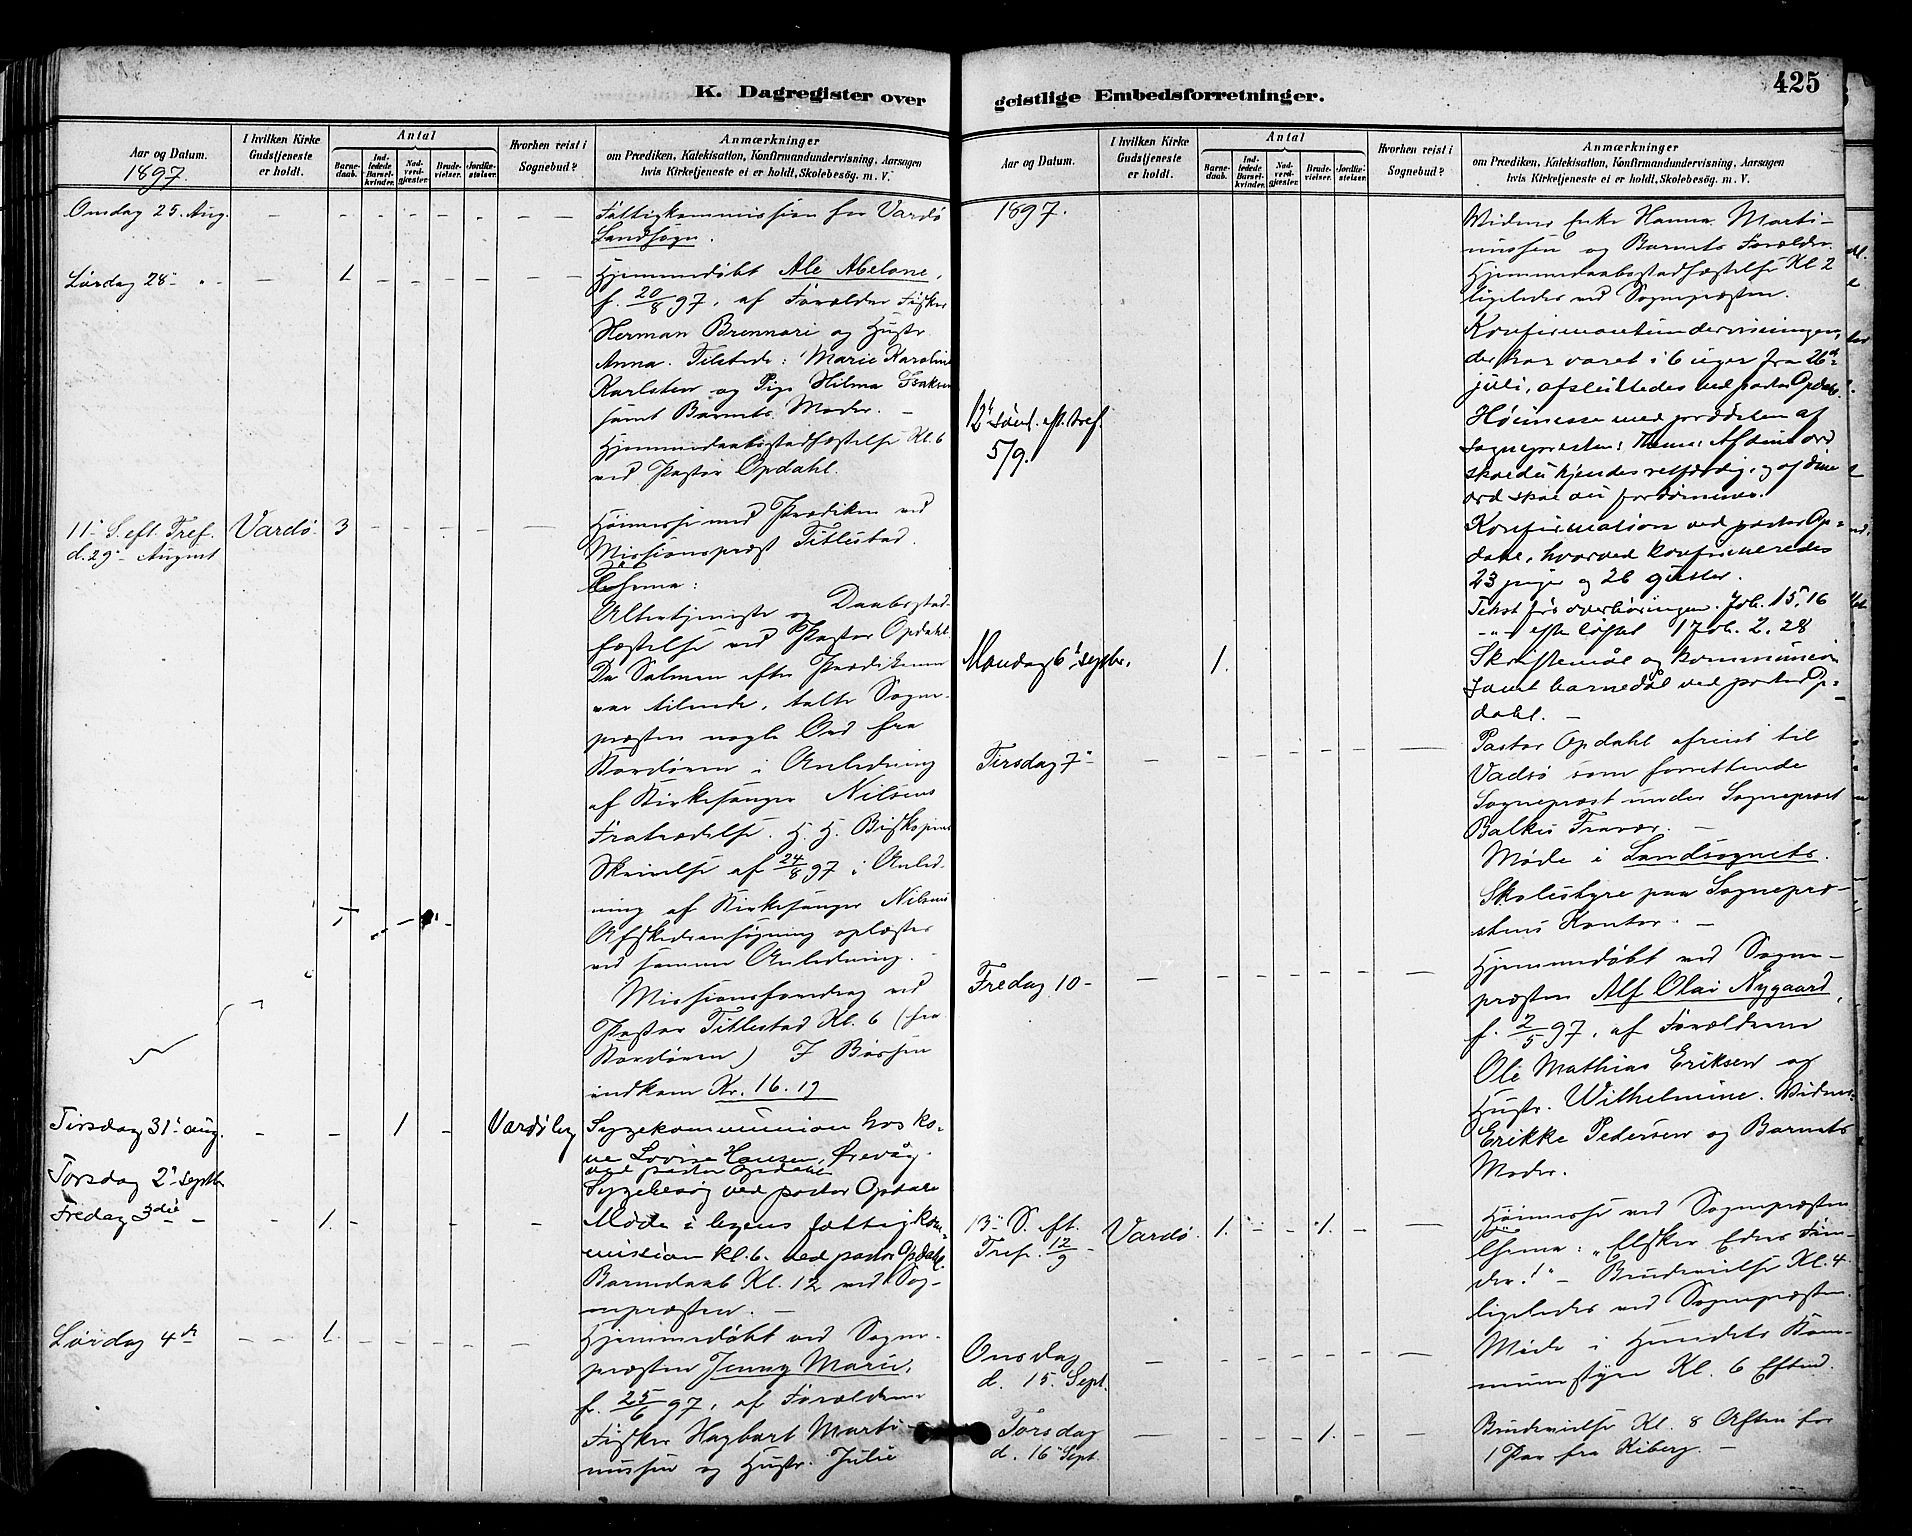 425
K. Dagregister over
geistlige Embedsforretninger.
Aar og Datum.
1897.
I hvilken Kirke
Gudstjeneste
er holdt.
Antal
Barne-
daab.
Ind-
ledede
Barsel-
kvinder.
Nad-
verd-
gjester.
Brude-
vielser.
Jordfæ-
stelser.
Hvorhen reist i
Sognebud?
Anmærkninger
om Prædiken, Katekisation, Konfirmandundervisning, Aarsagen
hvis Kirketjeneste ei er holdt, Skolebesøg. m. V.
Onsdag 25. Aug.
Fattigkommission for Vardö
Landsogn.
Lørdag 28-
1
Hjemmedøbt Ale Abelone,
f. 20/8 97, af Forældre Fisker
Herman Brennari og Hustr
Anna. Tilstede: Marie Karoline
Karlsten og Pige Hilma Isaksen
samt Barnets Moder. -
Hjemmedaabsstadfæstelse Kl. 6
ved Pastor Opdahl.
11- S. eft. Tref.
d. 29- August
Vardö
3
Høimesse med Prædiken ved
Missionsprest Titlestad.
Thema:
Altertjeneste og Daabsstad-
fæstelse ved Pastor Opdahl.
Da Salmen efter Prædikenen
var tilende, talte Sogne-
præsten nogle Ord fra
Kordören i Anledning
af Kirkesanger Nilsens
Fratrædelse. H. H. Biskopens
Skrivelse af 24/8 97 i Anled-
ning af Kirkesanger Nilsens
Afskedsansøgning oplæstes
ved samme Anledning. -
Missionsforedrag ved
Pastor Titlestad Kl. 6 (fra
Kordören) I Bøssen
indkom Kr. 16.19
Tirsdag 31' aug.
1
Vardö by
Sygekommunion hos ko-
ne Lovise Hansen, Ørevåg.
ved pastor Opdahl
Torsdag 2' septbr
Sygebesög ved pastor Opdahl
Fredag 3die -
1.
Møde i byens fattigkom-
mission kl. 6. ved pastor Opdahl.
Barnedaab Kl. 12 ved Sog-
nepræsten. -
Lørdag 4de
1.
Hjemmedøbt ved Sogne-
præsten Jenny Marie,
f. 25/6 97, af Forældrene
Fisker Hagbart Marti-
nussen og Hustr. Julie
Aar og Datum.
I hvilken Kirke
Gudstjeneste
er holdt.
Antal
Barne-
daab.
Ind-
ledede
Barsel-
kvinder.
Nad-
verd-
gjester.
Brude-
vielser.
Jordfæ-
stelser.
Hvorhen reist i
Sognebud?
Anmærkninger
om Prædiken, Katekisation, Konfirmandundervisning, Aarsagen
hvis Kirketjeneste ei er holdt, Skolebesøg. m. V.
1897.
Vidner Enke Hanna Marti-
nussen og Barnets Forældre.
Hjemmedaabsstadfæstelse Kl. 2
ligeledes ved Sognepræsten.
Konfirmantundervisningen,
der har varet i 6 uger fra 26de
juli, afsluttedes ved pastor Opdahl.
12' sönd. eft. tref.
5/9.
Höimesse med prædiken af
sognepresten: Thema: Af dine ord
skal du kjendes retfærdig, og af dine
ord skal du fordömmes.
Konfirmation ved pastor Op-
dahl, hvorved konfirmeredes
23 piger og 26 gutter.
Tekst før overhöringen. Joh. 15,16
-"- efter löftet 1 Joh. 2. 28
Mandag 6' septbr.
1.
Skriftemål og kommunion
samt barnedåb ved pastor Op-
dahl. -
Tirsdag 7-
Pastor Opdahl afreist til
Vadsö som forrettende
Sogneprest under Sogneprest
Balkes Fravær. -
Møde i Landsognets
Skolestyre paa Sognepræ-
stens Kontor. -
Fredag 10-
Hjemmedøbt ved Sogne-
præsten Alf Olai Nygaard,
f. 2/5 97, af Forældrene
Ole Mathias Eriksen og
Hustr. Wilhelmine. Vidner
Erikke Pedersen og Barnets
Moder.
13- S. eft.
Tref. 12/9 -
Vardö.
1.
1.
Høimesse ved Sognepræsten
Thema: "Elsker Eders Fien-
der!" - Brudevielse Kl. 4
ligeledes ved Sognepræsten.
Onsdag
d. 15. Sept.
Møde i Herredets Kom-
munestyre Kl. 6 Eftmd.
Torsdag
d. 16 Sept.
1.
Brudevielse Kl. 8 Aften for
1 Par fra Kiberg. -